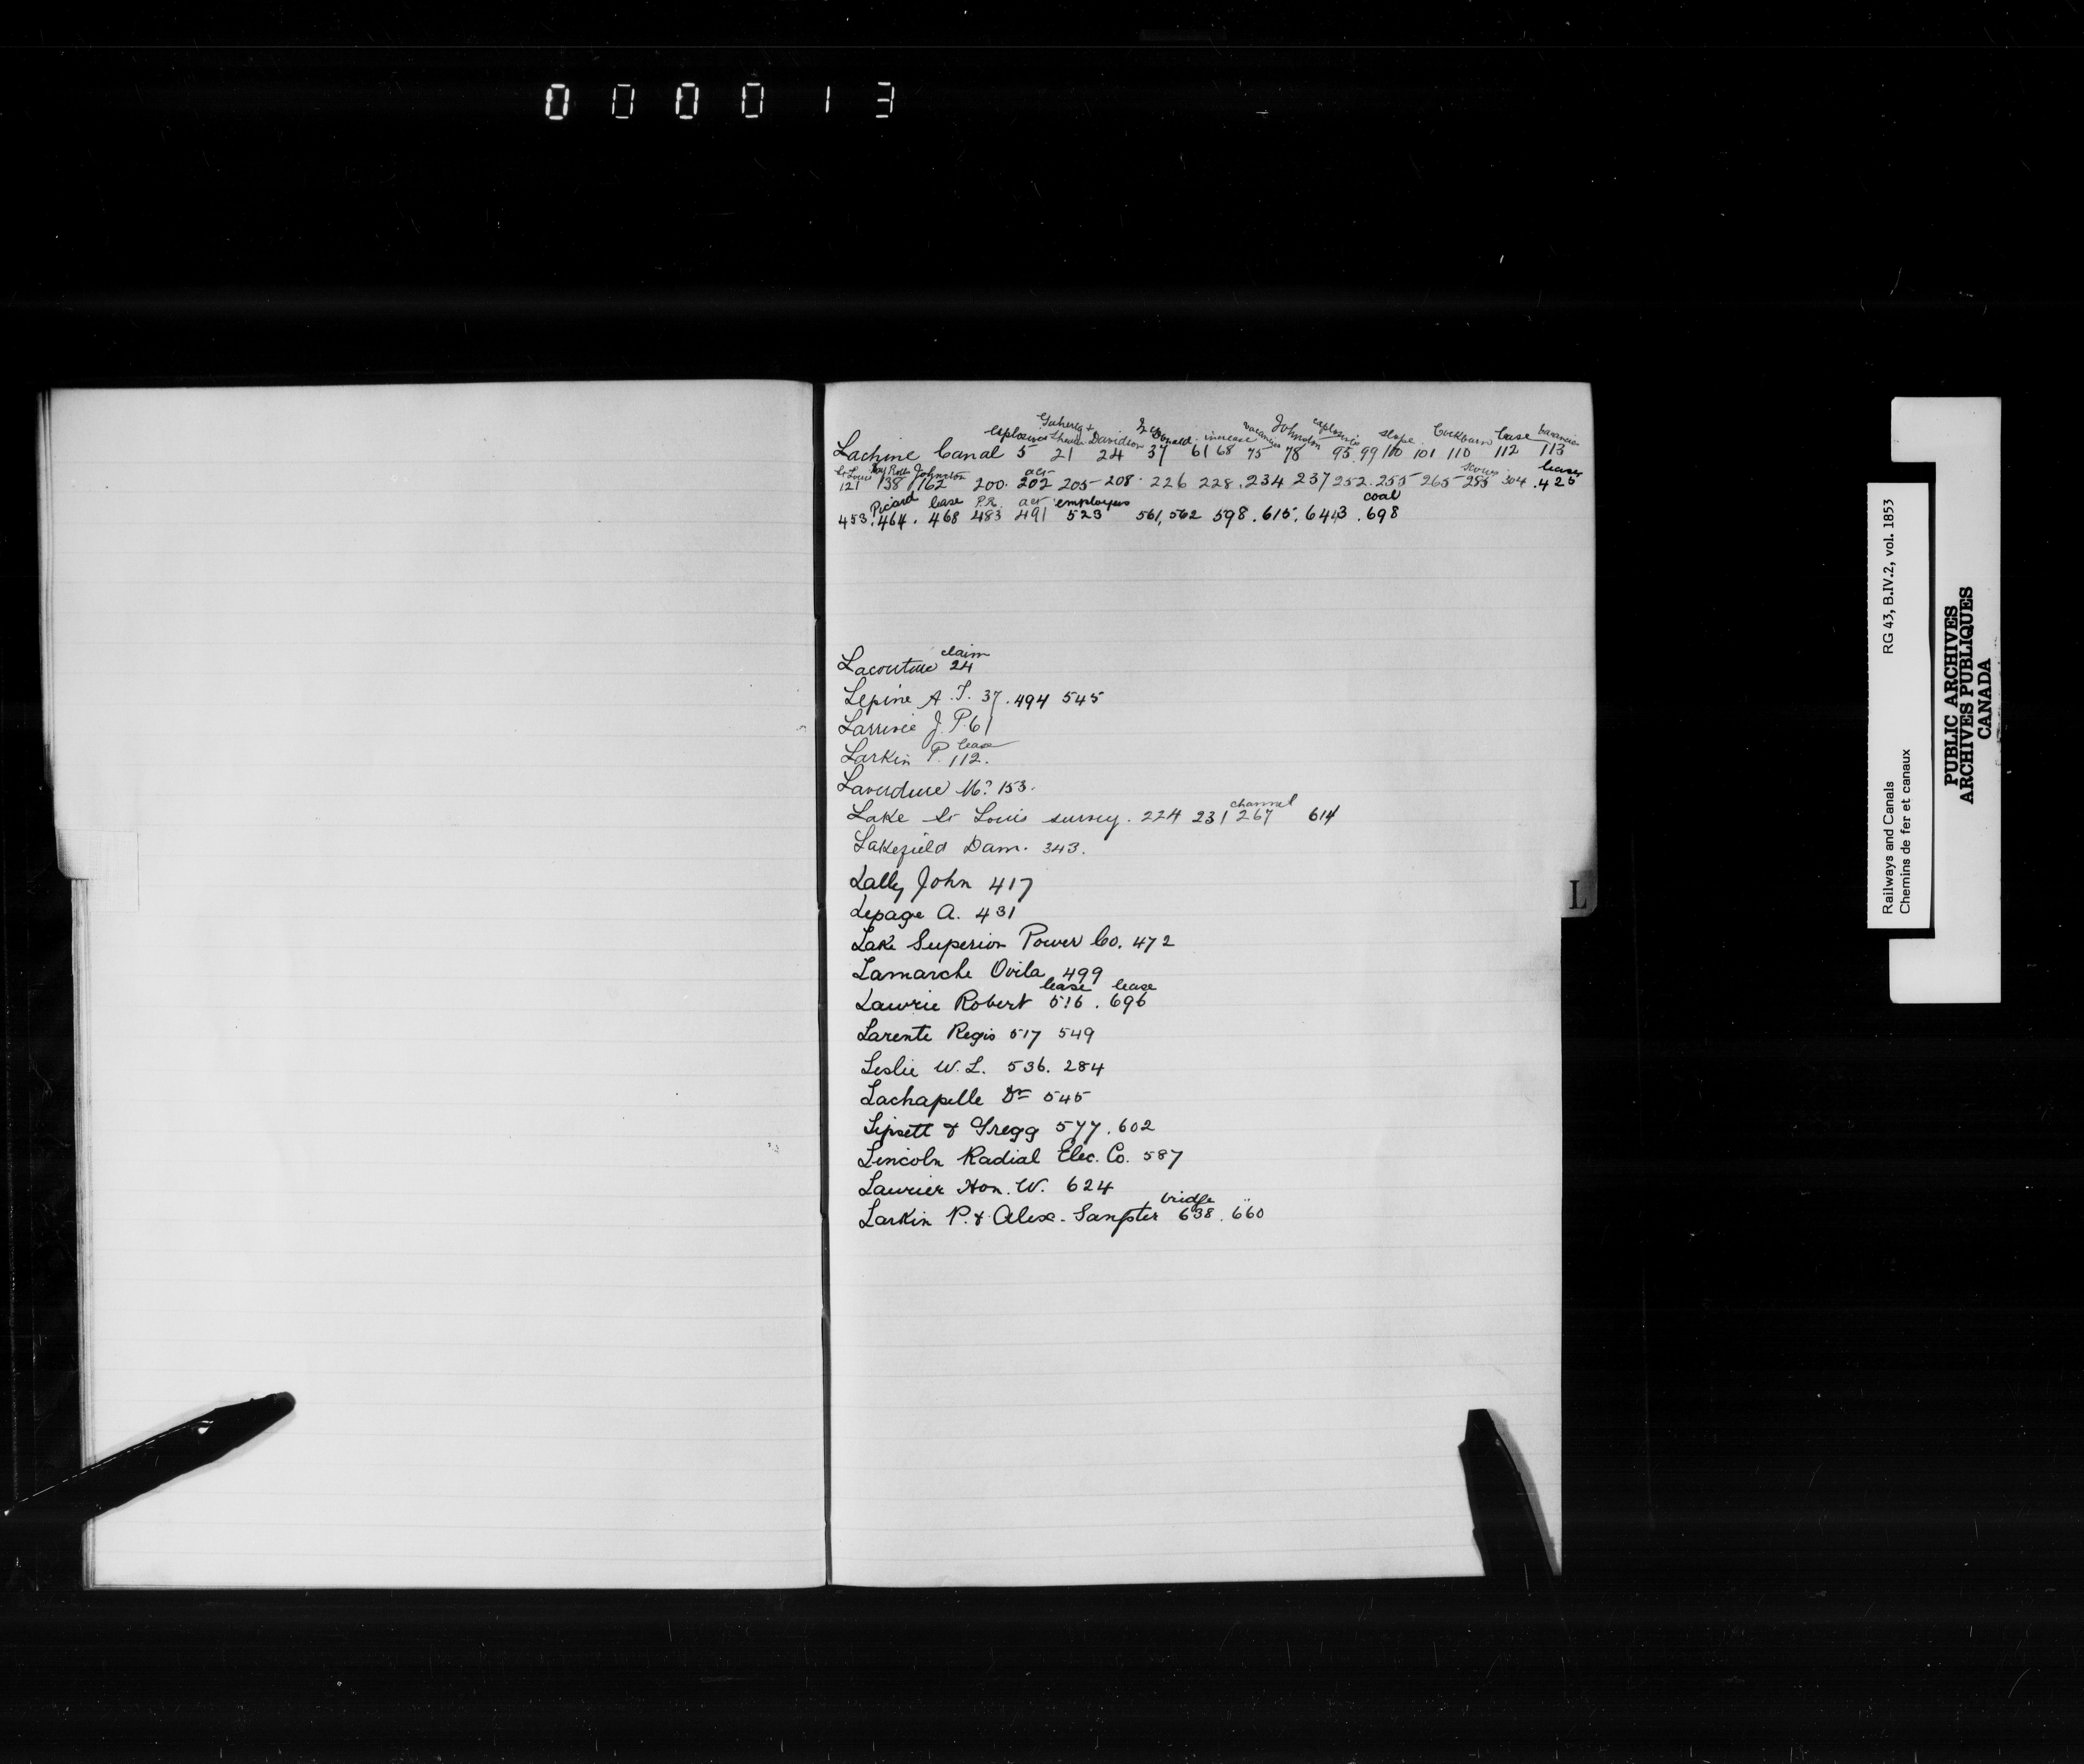 000013
explosives Davidson increase vacancies Johnston explosives slope Cockburn lease
Lachine Canal 5 21 24 37 61 68 75 78 95 99 100 101 110 112 113
St Louis Pay Rolls Johnston act leases
121 138 162 200. 202 205 208. 226 228. 234 237 252. 255 265 285 304. 425
Picard lease P.R. act employees coal
453. 464. 468 483 491 523 561, 562 598. 615. 643. 698
claim
Lacouture 24
Lepine A. T. 37. 494 545
Larrivie J. P. 61
lease
Larkin P. 112.
Laverdure M? 153.
channel
Lake St Louis survey. 224 231 267 614
Lakefield Dam. 343.
Lally John 417
L
Lepage A. 431
Lake Superior Power Co. 472
Lamarche Ovila 499
lease lease
Lawrie Robert 516. 696
Larente Regis 517 549
Leslie W. L. 536. 284
Lachapelle Dr 545
Lipsett & Gregg 577. 602
Lincoln Radial Elec. Co. 587
Laurier Hon. W. 624
bridge "
Larkin P. & Alex. Sangster 638. 660
Railways and Canals RG 43, B.IV.2, vol. 1853
Chemins de fer et canaux
PUBLIC ARCHIVES
ARCHIVES PUBLIQUES
CANADA